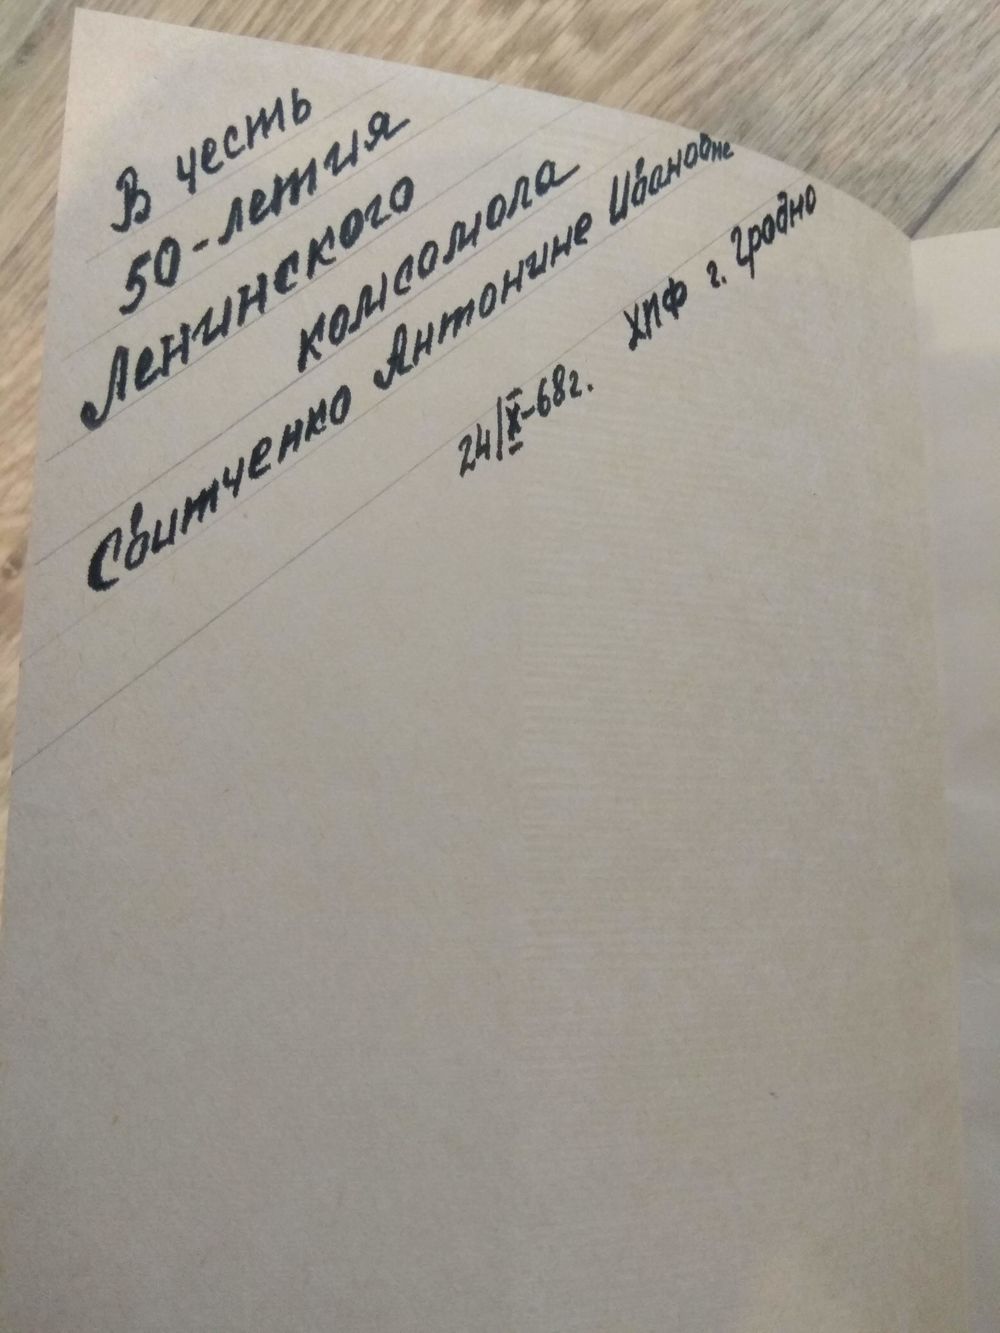 В честь
50-летия
Ленинского
комсомола
Свитченко Антонине Ивановне
ХПФ г. Гродно
24/X-68г.